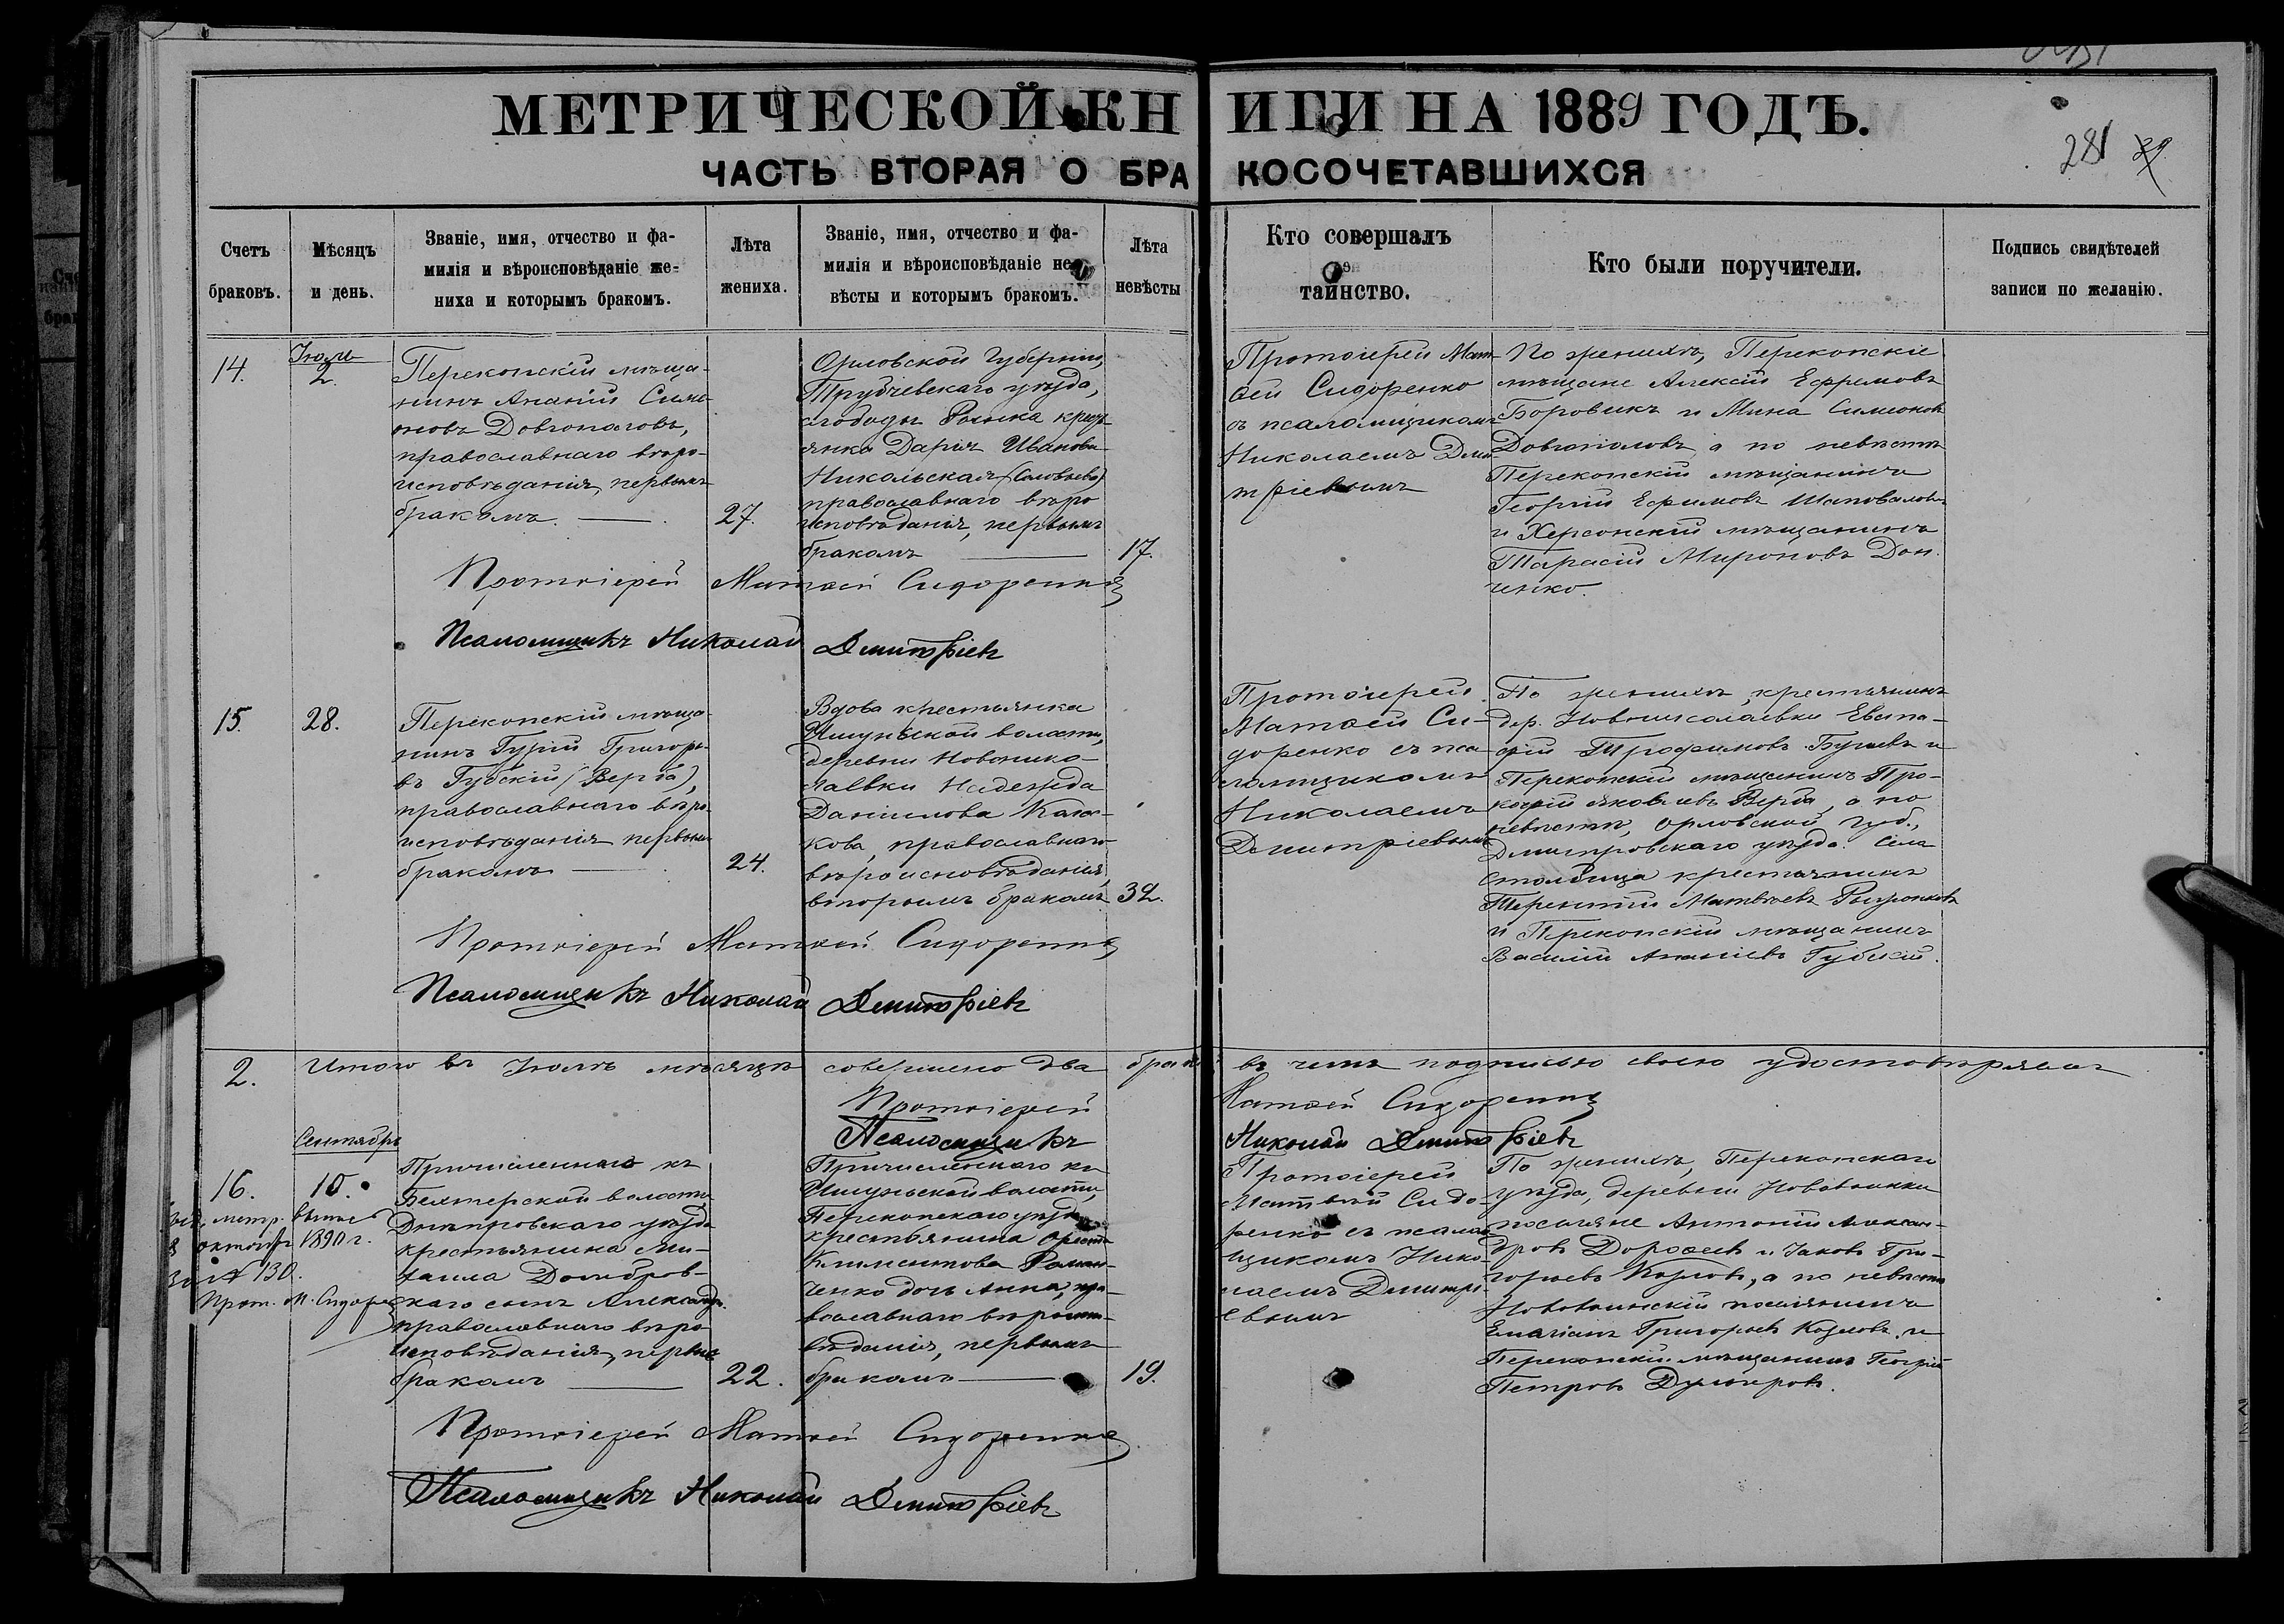 МЕТРИЧЕСКОЙ КНИГИ НА 1889 ГОДЪ.
ЧАСТЬ ВТОРАЯ О БРАКОСОЧЕТАВШИХСЯ
281
Счетъ браковъ.
Мѣсяцъ и день.
Званіе, имя, отчество и фа-
милія и вѣроисповѣданіе же-
ниха и которымъ бракомъ.
Лѣта жениха.
Званіе, имя, отчество и фа-
милія и вѣроисповѣданіе не-
вѣсты и которымъ бракомъ.
Лѣта невѣсты
Кто совершалъ таинство.
Кто были поручители.
Подпись свидѣтелей
записи по желанію.
14.
Іюль
2.
Перекопскій мѣща-
нинъ Ананій Симо-
новъ Довгополовъ,
православнаго вѣро-
исповѣданія, первымъ
бракомъ.
27.
Орловской Губерніи,
Трубчевскаго уѣзда,
слободы крестья-
янка Дарія Иванова
Никольская (Соловьева)
православнаго вѣро
исповѣданія, первымъ
бракомъ
17.
Протоіерей Мат-
ѳей Сидоренко
съ псаломщикомъ
Николаемъ Дми-
тріевымъ
По женихѣ, Перекопскіе
мѣщане Алексій Ефремовъ
Боровикъ и Мина Симеоновъ
Довгополовъ, а по невѣстѣ
Перекопскій мѣщанинъ
Георгій Ефимовъ Шаповаловъ
и Херсонскій мѣщанинъ
Тарасій Мироновъ Дон-
ченко.
Протоіерей Матѳей Сидоренко
Псаломщикъ Николай Дмитріевъ
15.
28.
Перекопскій мѣща-
нинъ Гурій Григорь-
въ Губскій (Верба),
православнаго вѣро-
исповѣданія первымъ
бракомъ
24.
Вдова крестьянка
Ишуньской волости,
деревни Новонико-
лаевки Надежда
Даніилова
кова, православнаго
вѣроисповѣданія,
вторымъ бракомъ
32.
Протоіерей
Матѳей Си-
доренко съ пса-
ломщикомъ
Николаемъ
Дмитріевымъ
По женихѣ, крестьянинъ
дер. Новониколаевки Евста-
фій Трофимовъ и
Перекопскій мѣщанинъ Про-
кофій Яковлевъ Верба, а по
невѣстѣ, Орловской губ.,
Дмитровскаго уѣзда. Села
Столбища крестьянинъ
Терентій Матвѣевъ
и Перекопскій мѣщанинъ
Василій Ананіевъ Губскій.
Протоіерей Матѳей Сидоренко
Псаломщикъ Николай Дмитріевъ
2.
Итого въ Іюлѣ мѣсяцѣ совершено два брака въ чемъ подписью своею удостовѣряемъ
Протоіерей Матѳей Сидоренко
Псаломщикъ Николай Дмитріевъ
Сентябрь
16.
10.
метр. выпись
октября 1890 г.
за № 130.
Прот. М. Сидоренко
Причисленнаго къ
Бехтерской волости
Днѣпровскаго уѣзда
крестьянина Ми-
хаила Домбров-
скаго сынъ Александръ.
православнаго вѣро-
исповѣданія, первымъ
бракомъ
22.
Причисленнаго къ
Ишуньской волости,
Перекопскаго уѣзда
крестьянина Ореста
Климентова Роман-
ченко дочь Анна, пра-
вославнаго вѣроиспо-
вѣданія, первымъ
бракомъ
19.
Протоіерей
Матѳей Сидо-
ренко съ псалом-
щикомъ Нико-
лаемъ Дмитрі-
евымъ
По женихѣ, Перекопскаго
уѣзда, деревни Нововоинки
поселяне Антоній Алексан-
дровъ Дороѳеевъ и Іаковъ Гри-
горьевъ Козловъ, а по невѣстѣ
Нововоинскій поселянинъ
Григорьевъ Козловъ, и
Перекопскій мѣщанинъ Георгій
Петровъ
Протоіерей Матѳей Сидоренко
Псаломщикъ Николай Дмитріевъ